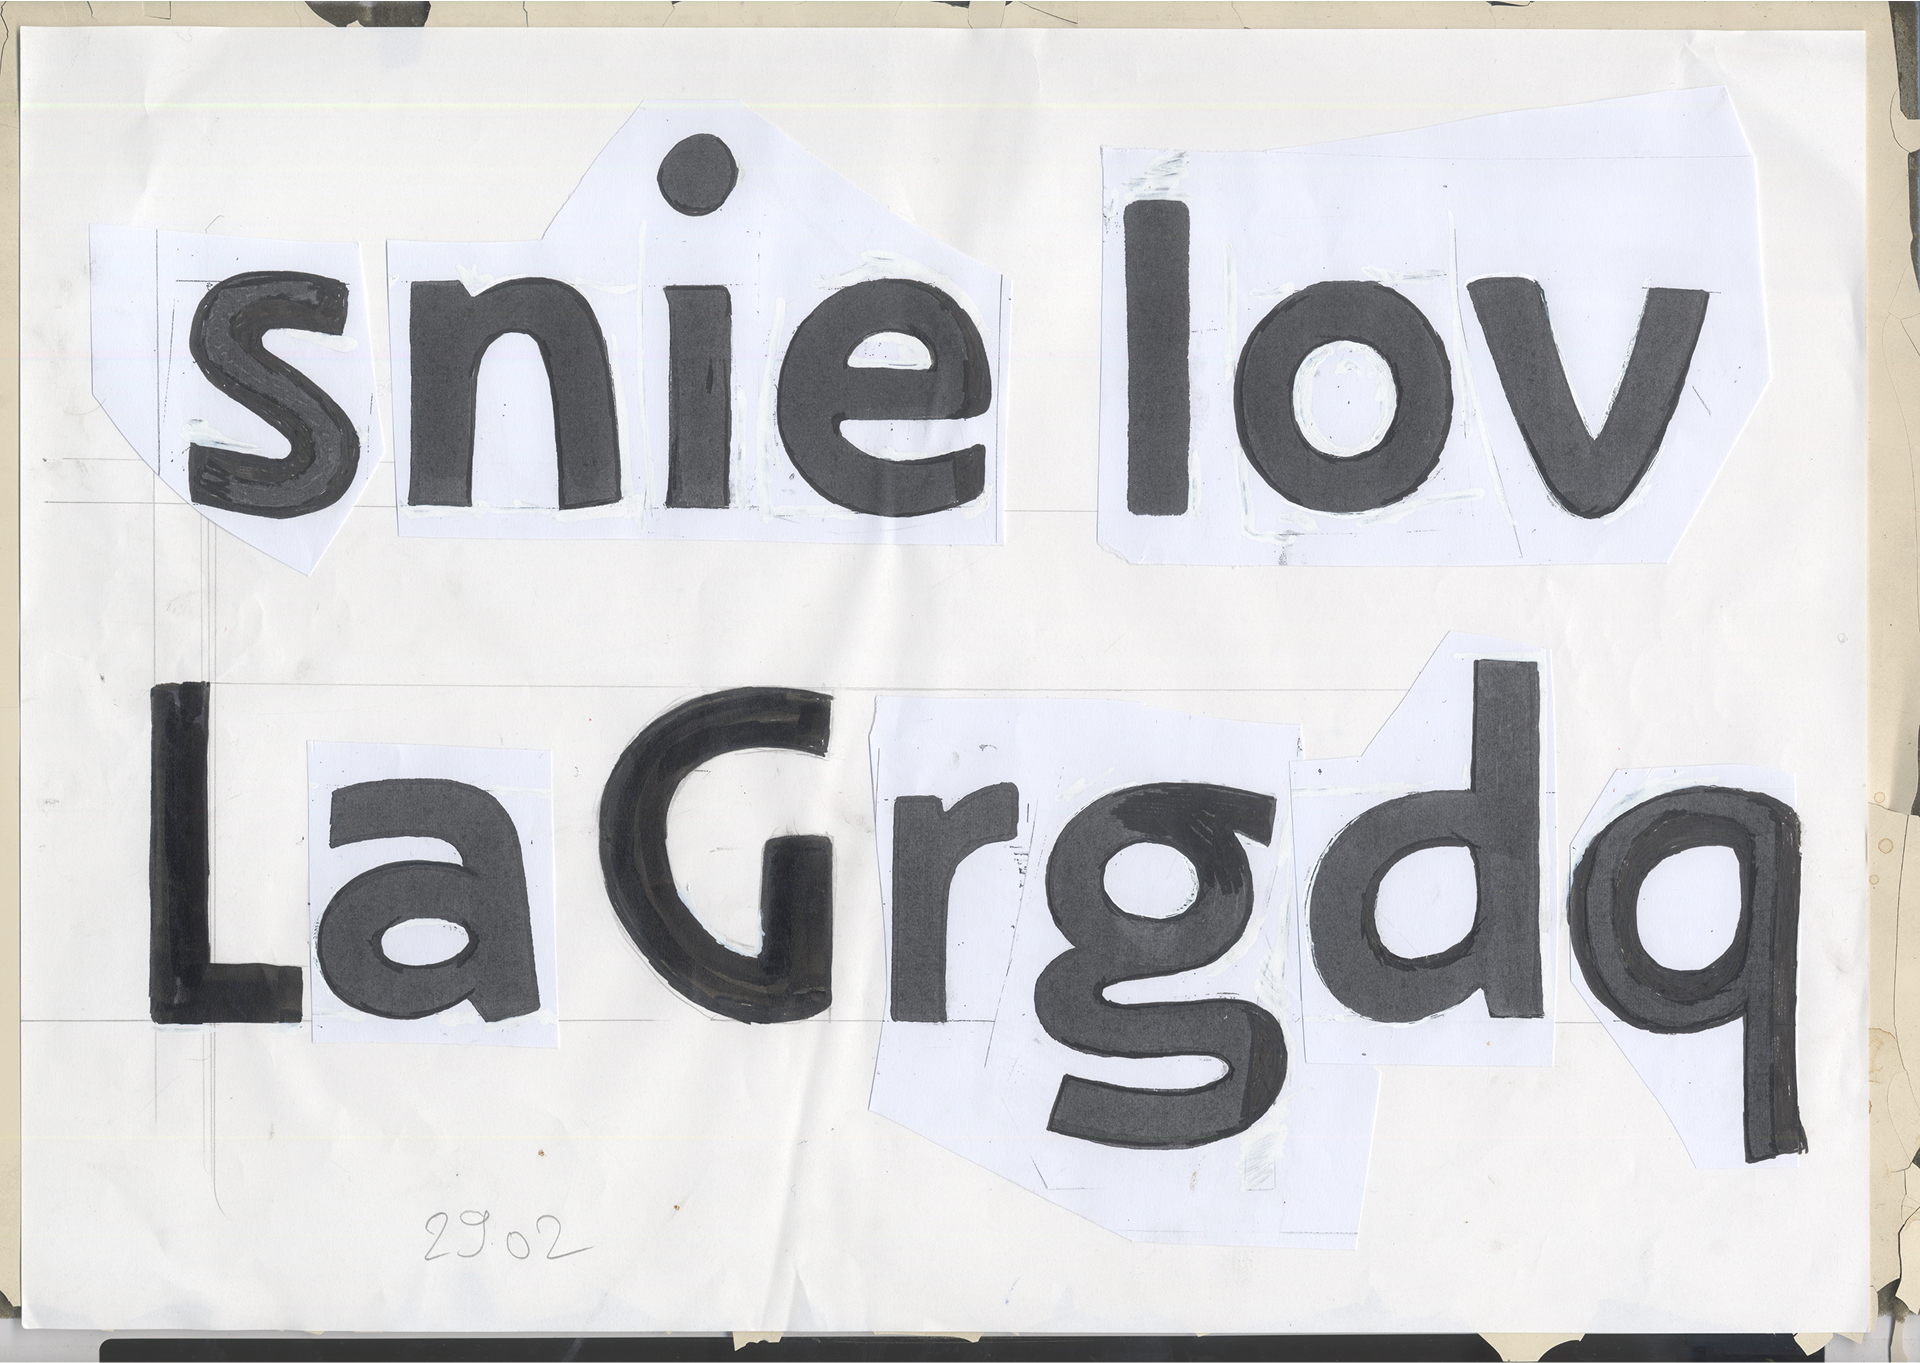 snie lov
LaGrgdq
29.02